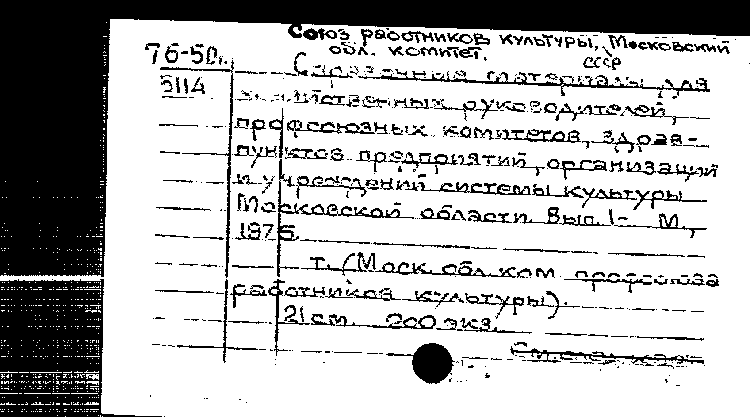 Союз работников культуры, Московский
обл. комитет. СССР
76-50г.
5114
Справочные материалы для
хозяйственных руководителей,
профсоюзных комитетов, здрав-
пунктов предприятий, организаций
и учреждений системы культуры
Московской области. Вып. 1- М.,
1975.
т. (Моск. обл. ком. профсоюза
работников культуры).
21 см. 200 экз.
См. след. карт.